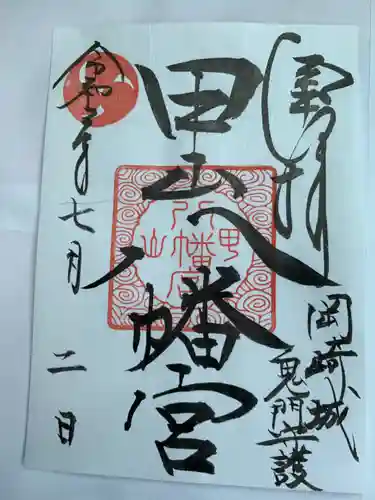 奉拝
岡崎城
鬼門守護
甲山八幡宮
甲山八幡宮
令和三年七月二日